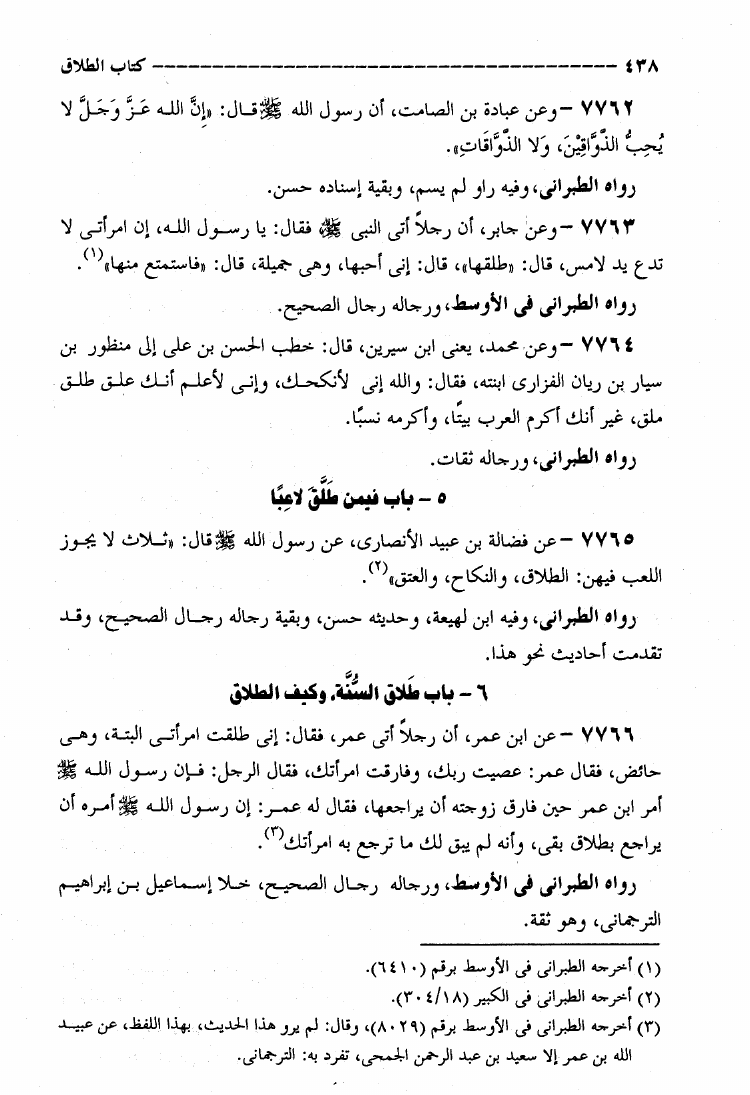 ٤٣٨ ---------------------------------------- كتاب الطلاق
٧٧٦٢ – وعن عبادة بن الصامت، أن رسول الله ﷺ قال: «إِنَّ الله عَزَّ وَجَلَّ لا
يُحِبُّ الذَّوَّاقِيْنَ، وَلا الذَّوَّاقَاتِ».
رواه الطبرانى، وفيه راو لم يسم، وبقية إسناده حسن.
٧٧٦٣ – وعن جابر، أن رجلاً أتى النبى ﷺ فقال: يا رسول الله، إن امرأتى لا
تدع يد لامس، قال: «طلقها»، قال: إنى أحبها، وهى جميلة، قال: «فاستمتع منها»(١).
رواه الطبرانى فى الأوسط، ورجاله رجال الصحيح.
٧٧٦٤ – وعن محمد، يعنى ابن سيرين، قال: خطب الحسن بن على إلى منظور بن
سيار بن ريان الفزارى ابنته، فقال: والله إنى لأنكحك، وإنى لأعلم أنك علق طلق
ملق، غير أنك أكرم العرب بيتًا، وأكرمه نسبًا.
رواه الطبرانى، ورجاله ثقات.
٥ – باب فيمن طَلَّقَ لاعِبًا
٧٧٦٥ – عن فضالة بن عبيد الأنصارى، عن رسول الله ﷺ قال: «ثلاث لا يجوز
اللعب فيهن: الطلاق، والنكاح، والعتق»(٢).
رواه الطبرانى، وفيه ابن لهيعة، وحديثه حسن، وبقية رجاله رجال الصحيح، وقد
تقدمت أحاديث نحو هذا.
٦ – باب طَلاق السُّنَّة، وكيف الطلاق
٧٧٦٦ – عن ابن عمر، أن رجلاً أتى عمر، فقال: إنى طلقت امرأتى البتة، وهى
حائض، فقال عمر: عصيت ربك، وفارقت امرأتك، فقال الرجل: فإن رسول الله ﷺ
أمر ابن عمر حين فارق زوجته أن يراجعها، فقال له عمر: إن رسول الله ﷺ أمره أن
يراجع بطلاق بقى، وأنه لم يبق لك ما ترجع به امرأتك(٣).
رواه الطبرانى فى الأوسط، ورجاله رجال الصحيح، خلا إسماعيل بن إبراهيم
الترجمانى، وهو ثقة.
(١) أخرجه الطبرانى فى الأوسط برقم (٦٤١٠).
(٢) أخرجه الطبرانى فى الكبير (٣٠٤/١٨).
(٣) أخرجه الطبرانى فى الأوسط برقم (٨٠٢٩)، وقال: لم يرو هذا الحديث، بهذا اللفظ، عن عبيد
الله بن عمر إلا سعيد بن عبد الرحمن الجمحى، تفرد به: الترجمانى.